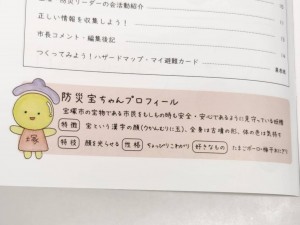 防災リーダーの会活動紹介
正しい情報を収集しよう!
市長コメント・編集後記
つくってみよう!ハザードマップ・マイ避難カード
防災宝ちゃんプロフィール
宝塚市の宝物である市民をもしもの時も安全・安心であるように見守っている妖精
特徴 宝という漢字の顔(うかんむりに玉)、全身は古墳の形、体の色は気持ち
特技 顔を光らせる 性格 ちょっぴりこわがり 好きなもの たまごボーロ・
塚